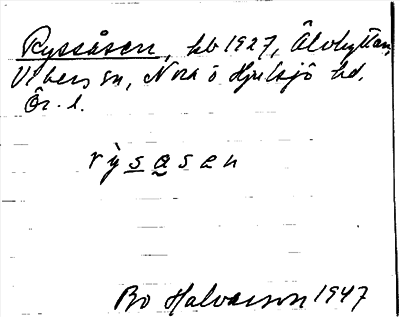 Ryssåsen, hb 1927, Älvhyttan,
Vibers sn, Nora o Hjulsjö hd,
Ör. l.
rỳsasen
Bo Halvarson 1947